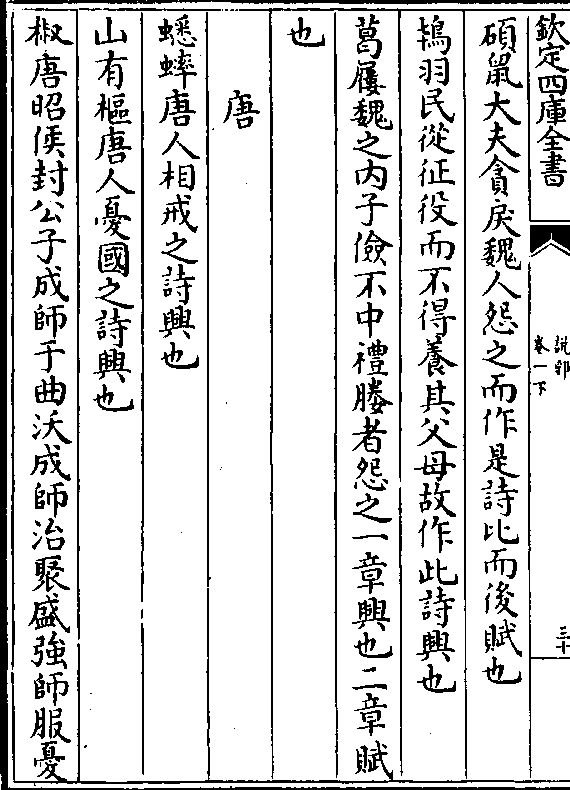 欽定四庫全書
說郛
卷一下
三十
碩䑕大夫貪戾魏人怨之而作是詩比而後賦也
鴇羽民從征役而不得養其父母故作此詩興也
葛屨魏之内子儉不中禮媵者怨之一章興也二章賦
也
唐
蟋蟀唐人相戒之詩興也
山有樞唐人憂國之詩興也
椒唐昭侯封公子成師于曲沃成師治聚盛強師服憂